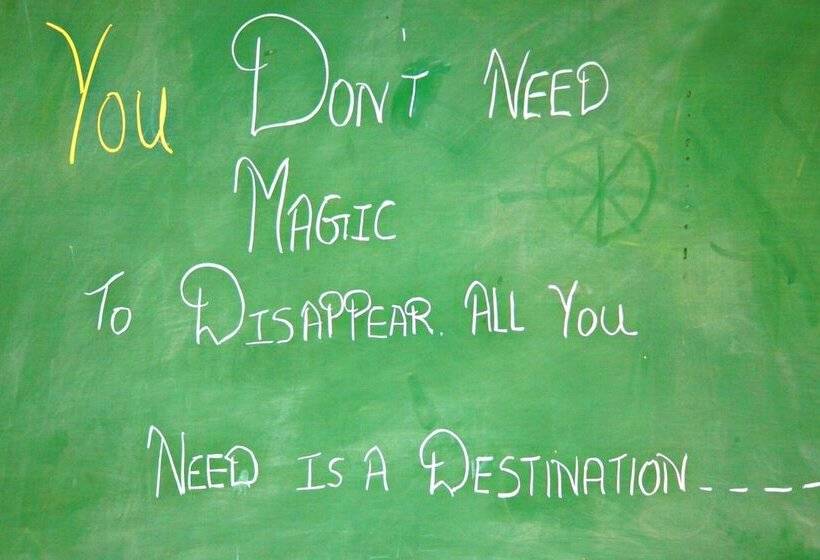 You DON'T NEED
MAGIC
To DISAPPEAR. ALL YOU
NEED IS A DESTINATION----